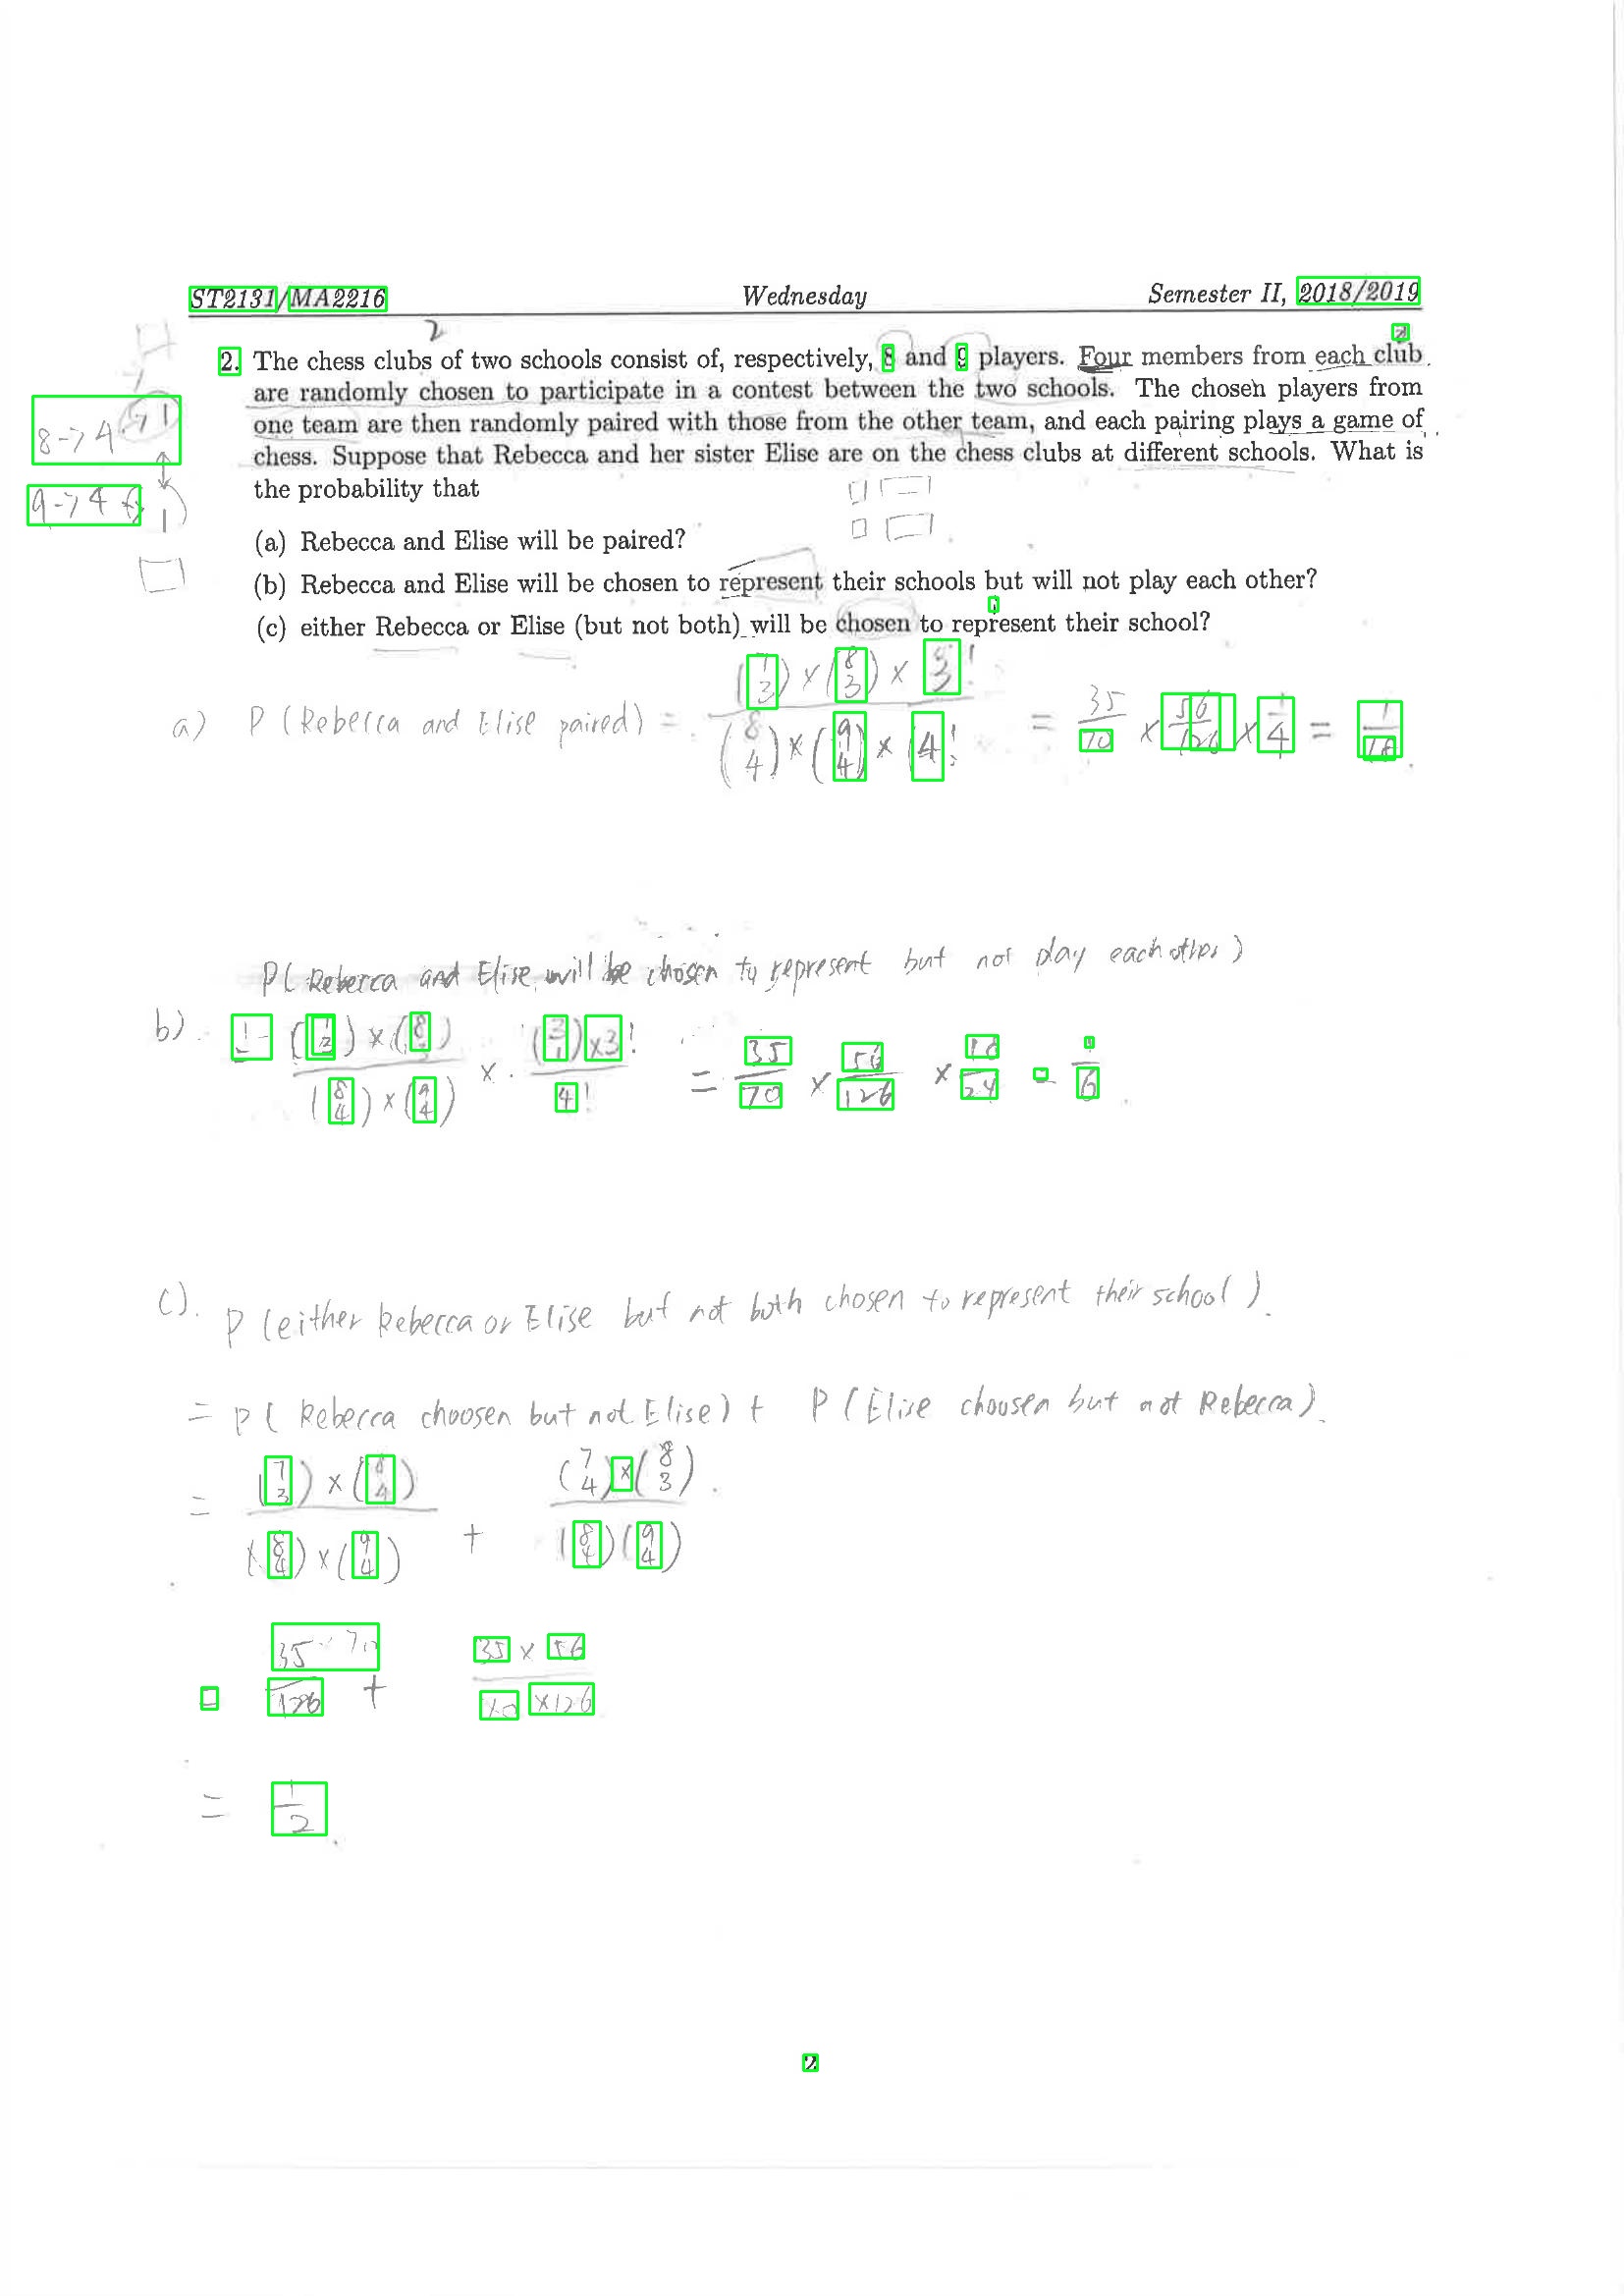 ST2131/MA2216 Wednesday Semester II, 2018/2019
2
2. The chess clubs of two schools consist of, respectively, 8 and 9 players. Four members from each club
are randomly chosen to participate in a contest between the two schools. The chosen players from
one team are then randomly paired with those from the other team, and each pairing plays a game of
chess. Suppose that Rebecca and her sister Elise are on the chess clubs at different schools. What is
the probability that
8->4 -> 1
9->4 1
(a) Rebecca and Elise will be paired?
(b) Rebecca and Elise will be chosen to represent their schools but will not play each other?
(c) either Rebecca or Elise (but not both) will be chosen to represent their school?
a) P (Rebecca and Elise paired) = (7 3) × (8 3) × 3! / (8 4) × (9 4) × 4! = 35/70 × 56/126 × 1/4 = 1/18
P( Rebecca and Elise will be chosen to represent but not play each other)
b) (8 4) × (9 4) 4! = 35/70 × 56/126 × 18/24 = 1/6
c). P (either Rebecca or Elise but not both chosen to represent their school).
= P( Rebecca choosen but not Elise) + P (Elise choosen but not Rebecca).
= (7 3) × (8 4) / (8 4) × (9 4) + (7 4) × (8 3) / (8 4)(9 4)
35 70 / 126 + 35 × 56 / 70 × 126
= 1/2
2